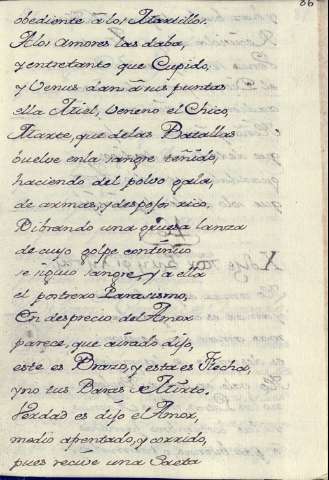 86
obediente â los Martillos.
A los amores las daba,
y entretanto que Cupido,
y Venus dan â sus puntas
ella Miel, veneno el Chico,
Marte, que de las Batallas
buelve en la sangre teñido,
haciendo del polvo gala,
de armas, y despojos rico.
Vibrando una gruesa lanza
de cuyo golpe continuo
se siguio sangre y a ella
el postrero Parasismo,
En desprecio del Amor
parece, que airado dijo,
este es Brazo, y esta es Flecha,
y no tus Baras de Mirto.
Verdad es dijo el Amor,
medio afrentado, y corrido,
pues recive una Saeta